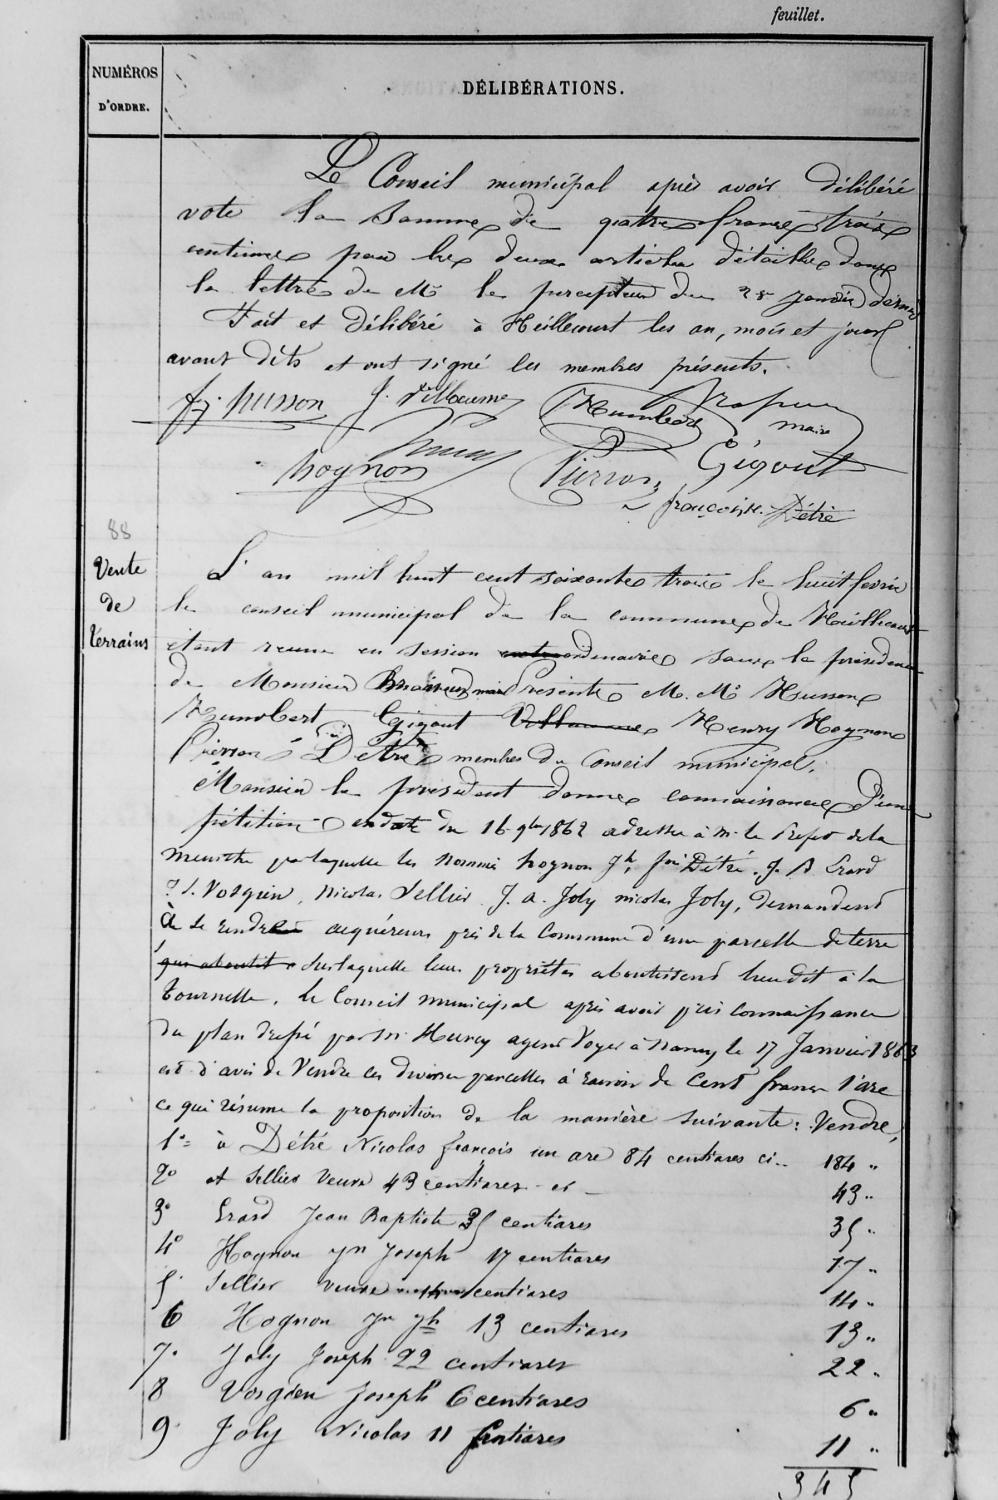 feuillet.
NUMÉROS
D'ORDRE.
DÉLIBÉRATIONS.
Le Conseil municipal après avoir délibéré
vote la somme de quatre francs trois
centimes pour les deux articles détaillés dans
la lettre de Mr le percepteur du 25 janvier dernier
Fait et délibéré à Heillecourt les an, mois et jour
avant dits et ont signé les membres présents.
husson J. Villaume Humbert
maire
hognon Pierron Gigout
françois N. Détré
88
Vente
de
terrains
L'an mil huit cent soixante trois le huit fevrier
le conseil municipal de la commune de Heillecourt
étant reuni en session extraordinaire sous la présidence
de Monsieur maire Présents M. Mr Husson
Humbert Gigout Villaume Henry Hognon
Pierron Détré membres du Conseil municipal.
Monsieur le président donne connaissance d'une
pétition en date du 16 9bre 1862 adressée à Mr le Prefet de la
Meurthe par laquelle les nommés hognon Jh, fois Détré, J. B Erard
J. Vosgien, Nicolas Sellier J. A. Joly nicolas Joly, demandent
à se rendre acquéreurs près de la Commune d'une parcelle de terre
qui aboutit sur laquelle leurs propriétés aboutissent lieudit à la
tournelle. Le Conseil municipal après avoir pris connaissance
du plan dressé par Mr Henry agent Voyer à Nancy le 17 Janvier 1863
est d'avis de Vendre ces diverses parcelles à raison de Cent francs l'are
ce qui résume la proposition de la manière suivante : Vendre,
1º à Détré Nicolas françois un are 84 centiares ci.. 184 "
2º et Sellier Veuve 43 centiares 43 "
3º Erard Jean Baptiste 35 centiares 35 "
4º Hognon Jn Joseph 17 centiares 17 "
5º Sellier veuve centiares 14 "
6 Hognon Jn Jh 13 centiares 13 "
7º Joly Joseph 22 centiares 22 "
8 Vosgien Joseph 6 centiares 6 "
9º Joly Nicolas 11 centiares 11 "
345